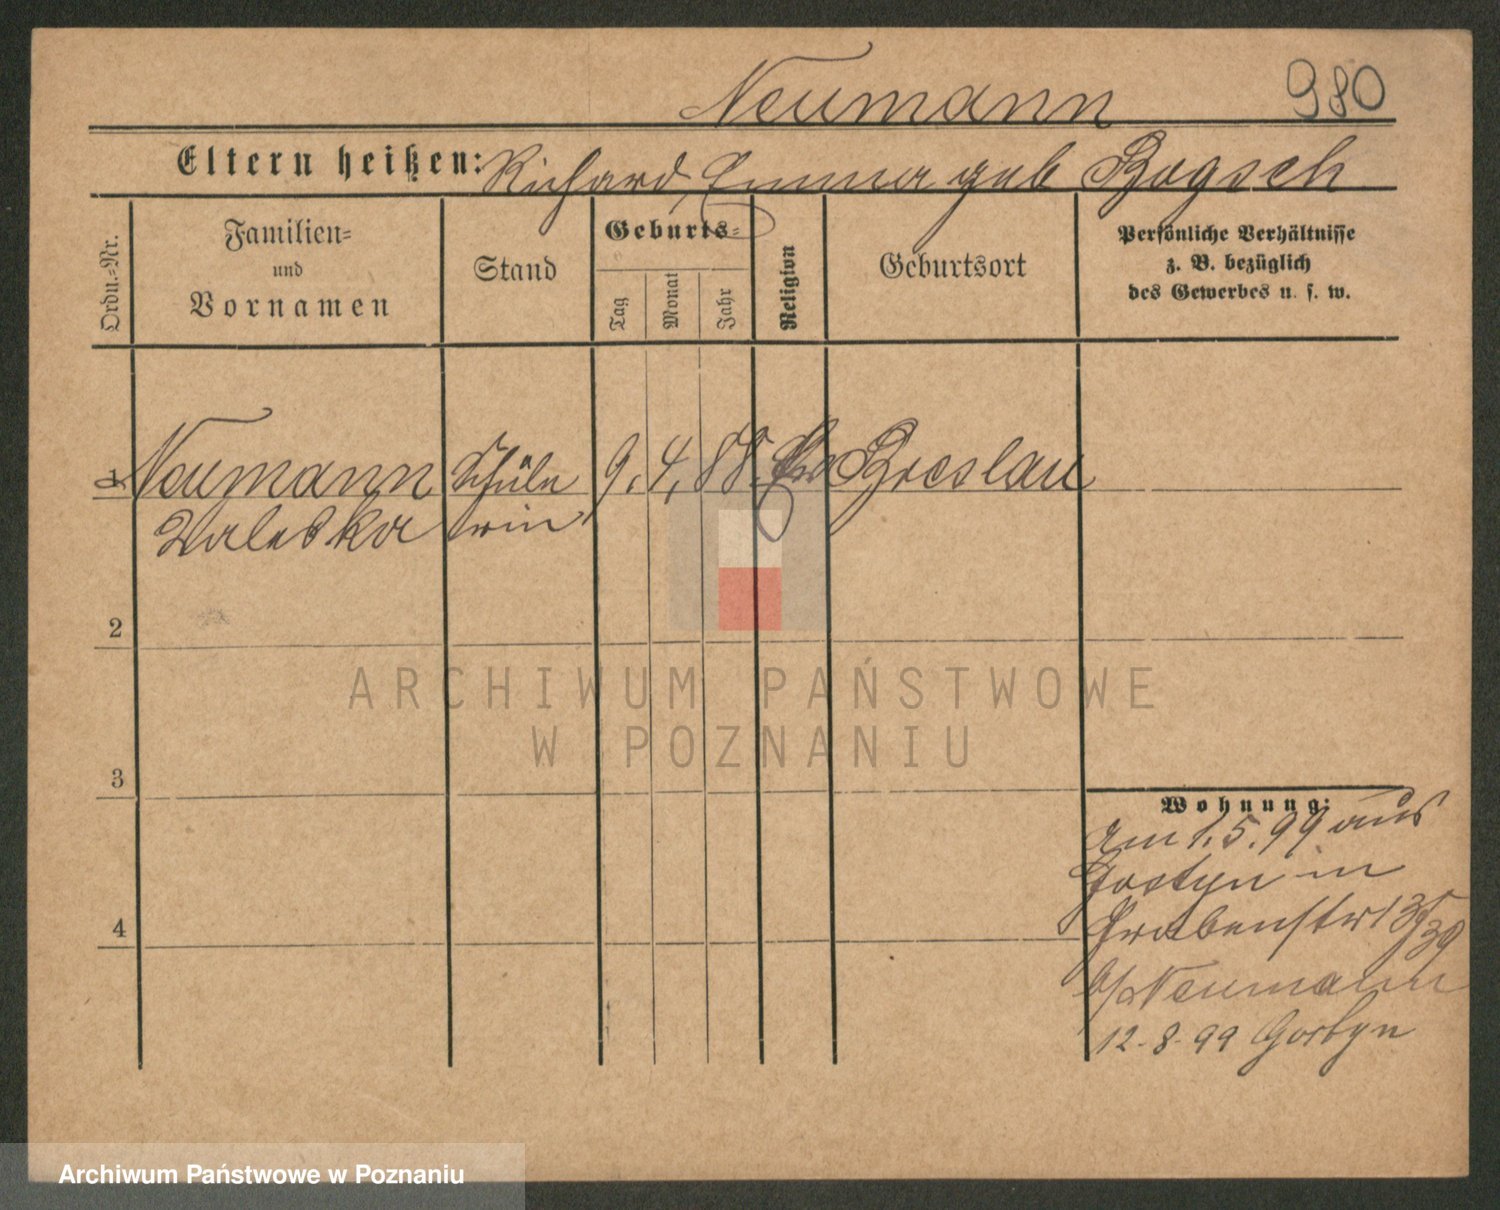 Neumann 980
Eltern heißen: Richard, Emma geb Bogsch
Ordn.-Nr.
Familien-
und
Vornamen
Stand
Geburts-
Tag
Monat
Jahr
Religion
Geburtsort
Persönliche Verhältnisse
z. B. bezüglich
des Gewerbes u. s. w.
1 Neumann Schüle 9. 4. 88. Breslau
Valeska rin
2
ARCHIWUM PAŃSTWOWE
W POZNANIU
3
Wohnung:
am 1.5.99 aus
Gostyn in
Grabenstr
b/ Neumann
12-8-99 Gostyn
4
Archiwum Państwowe w Poznaniu